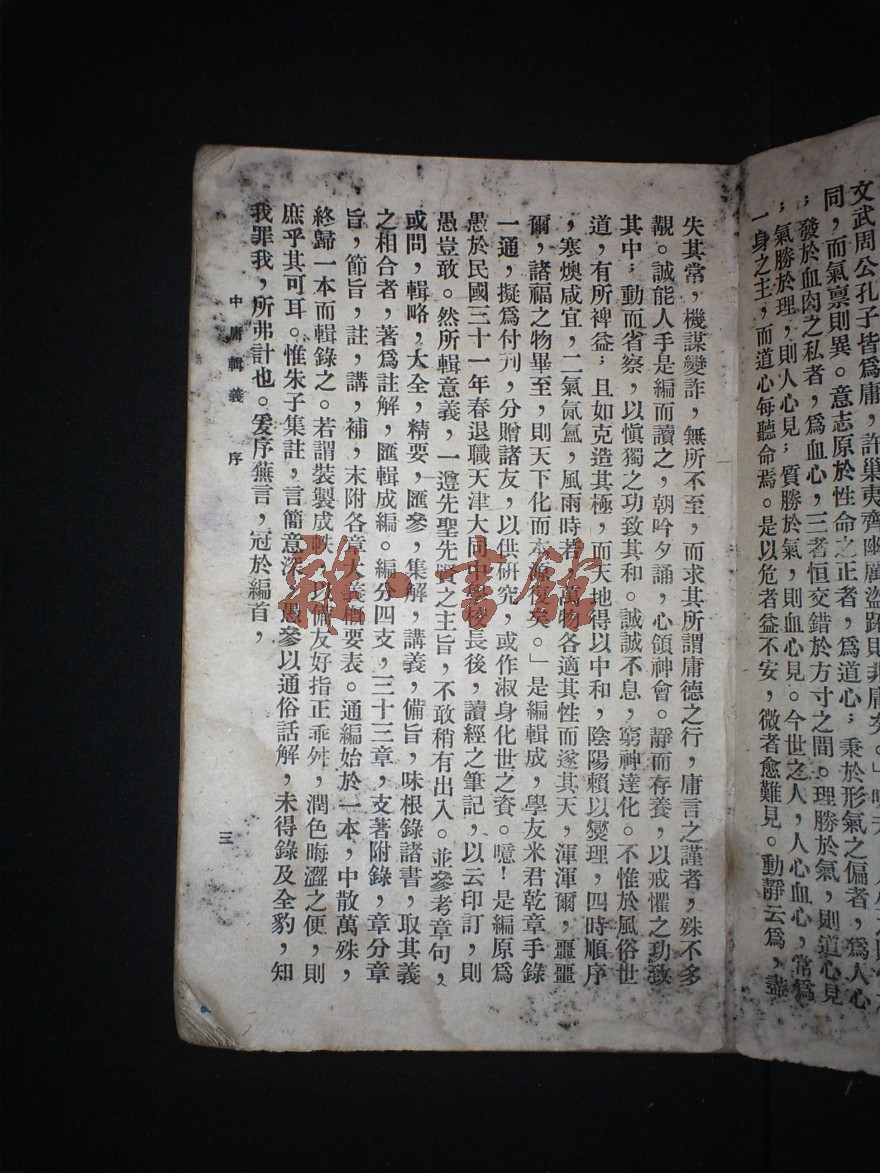 文武周公孔子皆爲庸，許巢夷齊幽厲盜跖則非庸矣。」
同，而氣禀則異。意志原於性命之正者，爲道心；秉於形氣之偏者，爲人心
；發於血肉之私者，爲血心，三者恒交錯於方寸之間。理勝於氣，則道心見
；氣勝於理，則人心見；質勝於氣，則血心見。今世之人，人心血心，常爲
一身之主，而道心每聽命焉。是以危者益不安，微者愈難見。動靜云爲，盡
失其常，機謀變詐，無所不至，而求其所謂庸德之行，庸言之謹者，殊不多
觀。誠能人手是編而讀之，朝吟夕誦，心領神會。靜而存養，以戒懼之功致
其中；動而省察，以愼獨之功致其和。誠誠不息，窮神達化。不惟於風俗世
道，有所裨益；且如克造其極，而天地得以中和，陰陽賴以燮理，四時順序
，寒燠咸宜，二氣氤氳，風雨時若，萬物各適其性而遂其天，渾渾爾，噩噩
爾，諸福之物畢至，則天下化而本源復矣。」是編輯成，學友米君乾章手錄
一通，擬爲付刋，分贈諸友，以供研究，或作淑身化世之資。噫！是編原爲
愚於民國三十一年春退職天津大同中學校長後，讀經之筆記，以云印訂，則
愚豈敢。然所輯意義，一遵先聖先賢之主旨，不敢稍有出入。並參考章句，
或問，輯略，大全，精要，匯參，集解，講義，備旨，味根錄諸書，取其義
之相合者，著爲註解，匯輯成編。編分四支，三十三章，支著附錄，章分章
旨，節旨，註，講，補，末附各章大義概要表。通編始於一本，中散萬殊，
終歸一本而輯錄之。若謂裝製成帙，以備友好指正乖舛，潤色晦澀之便，則
庶乎其可耳。惟朱子集註，言簡意深，愚參以通俗話解，未得錄及全豹，知
我罪我，所弗計也。爰序蕪言，冠於編首，
中庸輯義　序
三
雅·書館